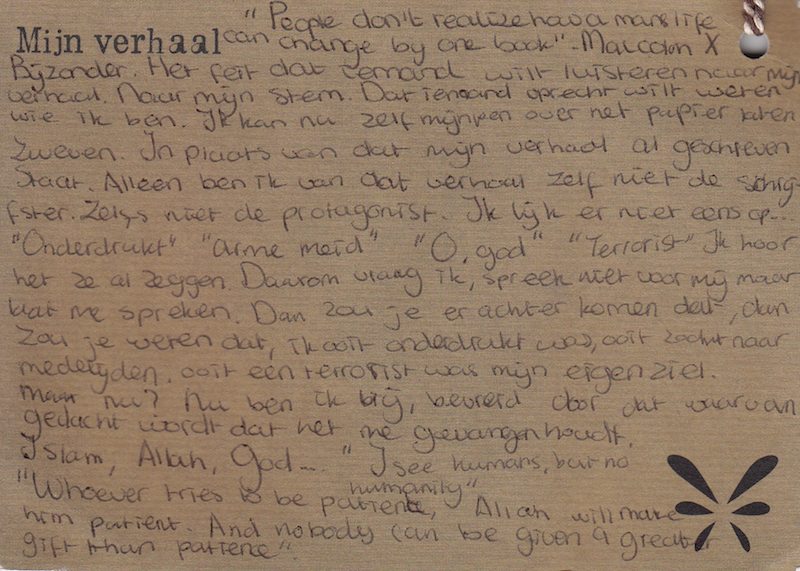 "People don't realize how a mans life
Mijn verhaal can change by one book" - Malcolm X
Bijzonder. Het feit dat iemand wilt luisteren naar mijn
verhaal. Naar mijn stem. Dat iemand oprecht wilt weten
wie ik ben. Ik kan nu zelf mijn pen over het papier laten
zweven. In plaats van dat mijn verhaal al geschreven
staat. Alleen ben ik van dat verhaal zelf niet de schrij
fster. Zelfs niet de protagonist. Ik lijk er niet eens op...
"Onderdrukt" "arme meid" "O, god" "Terrorist" Ik hoor
het ze al zeggen. Daarom vraag ik, spreek niet voor mij maar
laat me spreken. Dan zou je er achter komen dat, dan
zou je weten dat, ik ooit onderdrukt was, ooit zocht naar
medelijden, ooit een terrorist was mijn eigen ziel.
Maar nu? Nu ben ik blij, bevreid door dat waarvan
gedacht wordt dat het me gevangen houdt.
Islam, Allah, God.... "I see humans, but no
humanity"
"Whoever tries to be patient, Allah will make
him patient. And nobody can be given a greater
gift than patience".